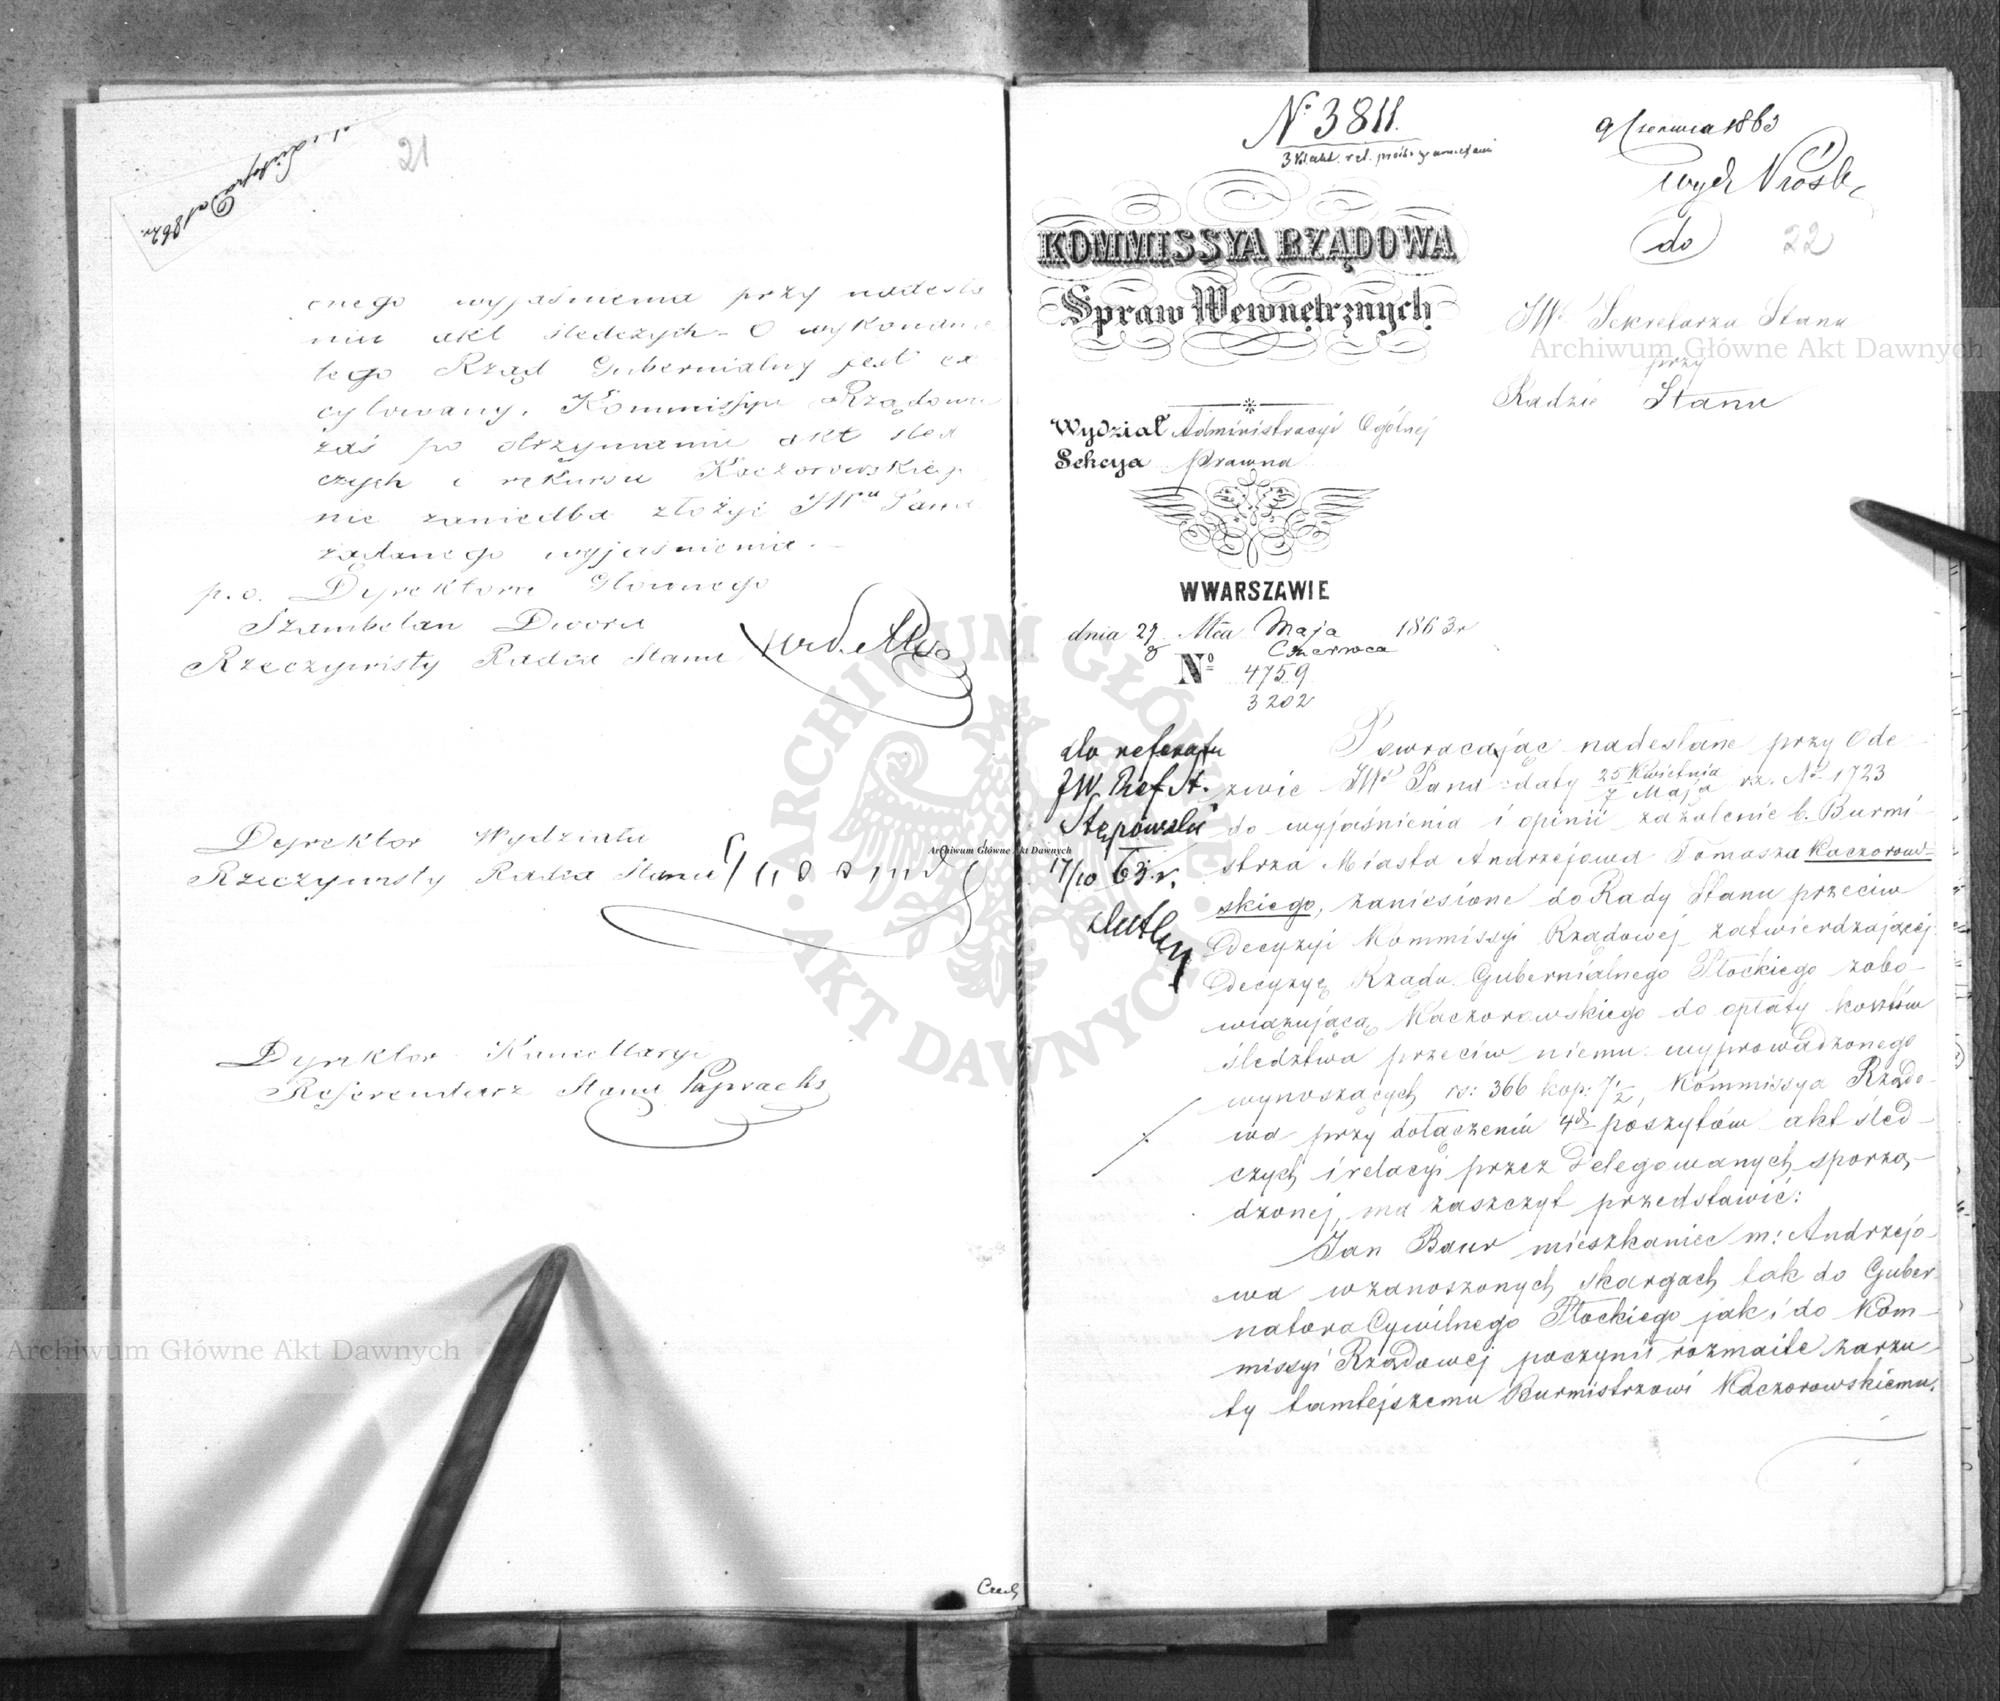 21
cnego wyjaśnienia przy nadesła
niu akt śledczych - O wykonanie
tego Rząd Gubernialny jest ex
cytowany, Kommissya Rządowa
zaś po otrzymaniu akt śled
czych i rekursu Kaczorowskiego
nie zaniedba złożyć JWu Panu
żądanego wyjaśnienia.
p.o. Dyrektora Głównego
Szambelan Dworu
Rzeczywisty Radca Stanu
Dyrektor Wydziału
Rzeczywisty Radca Stanu
Dyrektor Kancellaryi
Referendarz Stanu Paprocki
Czech
No 3811.
9 Czerwca 1863
do
22
KOMMISSYA RZĄDOWA
Spraw Wewnętrznych
JWo Sekretarza Stanu
przy
Radzie Stanu
Wydział Administracyi Ogólnej
Sekcya Prawna
W WARSZAWIE
dnia 27/8 Mca Maja/Czerwca 1863 r
No 4759
3202
do referatu
JW. Ref. St.
Stępowski
17/10 63 r.
Powracając nadesłane przy Ode
zwie JWo Pana z daty 25 Kwietnia/7 Maja rz. No 1723
do wyjaśnienia i opinii zażalenie b. Burmi
strza Miasta Andrzejowa Tomasza Kaczorow-
skiego, zaniesione do Rady Stanu przeciw
Decyzyi Kommissyi Rządowej zatwierdzającej
Decyzyę Rządu Gubernialnego Płockiego zobo-
wiązującą Kaczorowskiego do opłaty kosztów
śledztwa przeciw niemu wyprowadzonego
wynoszących rs: 366 kop: 7 1/2, Kommissya Rządo-
wa przy dołączeniu 4ch poszytów akt śled-
czych i relacyi przez Delegowanych sporzą-
dzonej, ma zaszczyt przedstawić:
Jan Baur mieszkaniec m: Andrzejo-
wa wzanoszonych skargach tak do Guber-
natora Cywilnego Płockiego jak i do Kom-
missyi Rządowej poczynił rozmaite zarzu-
ty tamtejszemu Burmistrzowi Kaczorowskiemu.
ARCHIWUM GŁÓWNE AKT DAWNYCH
Archiwum Główne Akt Dawnych
Archiwum Główne Akt Dawnych
Archiwum Główne Akt Dawnych